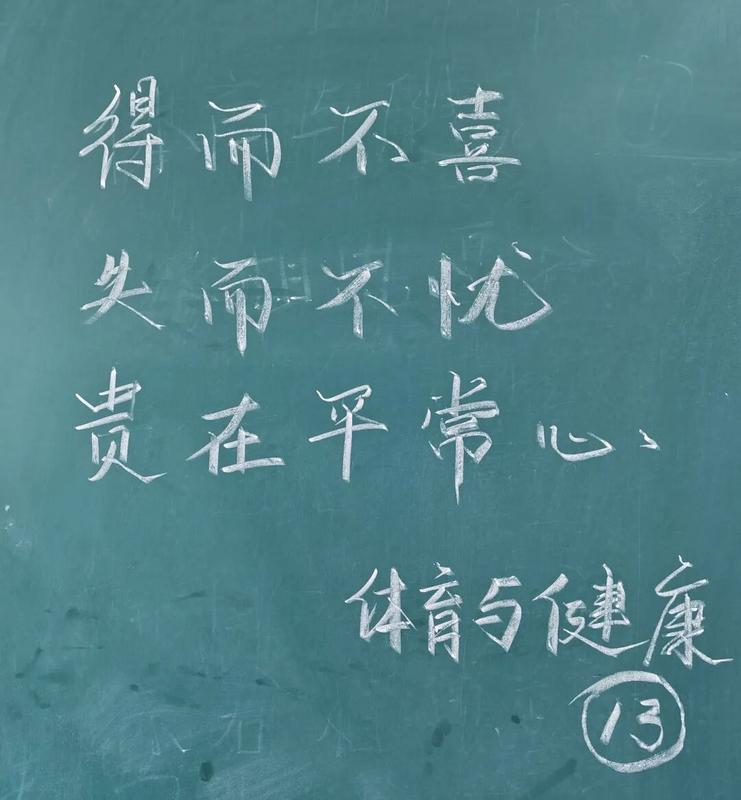 得而不喜
失而不忧
贵在平常心、
体育与健康
⑬